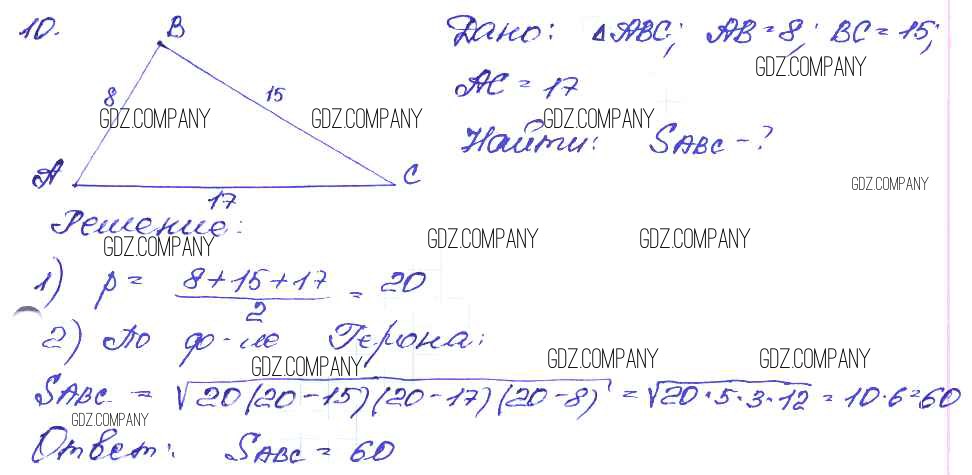 10.
B
Дано: △ABC; AB = 8; BC = 15;
GDZ.COMPANY
AC = 17
8
15
GDZ.COMPANY GDZ.COMPANY GDZ.COMPANY
Найти: SABC - ?
A
C
GDZ.COMPANY
17
Решение:
GDZ.COMPANY GDZ.COMPANY GDZ.COMPANY
1) p = (8+15+17)/2 = 20
2) По ф-ле Герона:
GDZ.COMPANY GDZ.COMPANY GDZ.COMPANY
SABC = √(20(20-15)(20-17)(20-8)) = √(20·5·3·12) = 10·6=60
GDZ.COMPANY
Ответ: SABC = 60